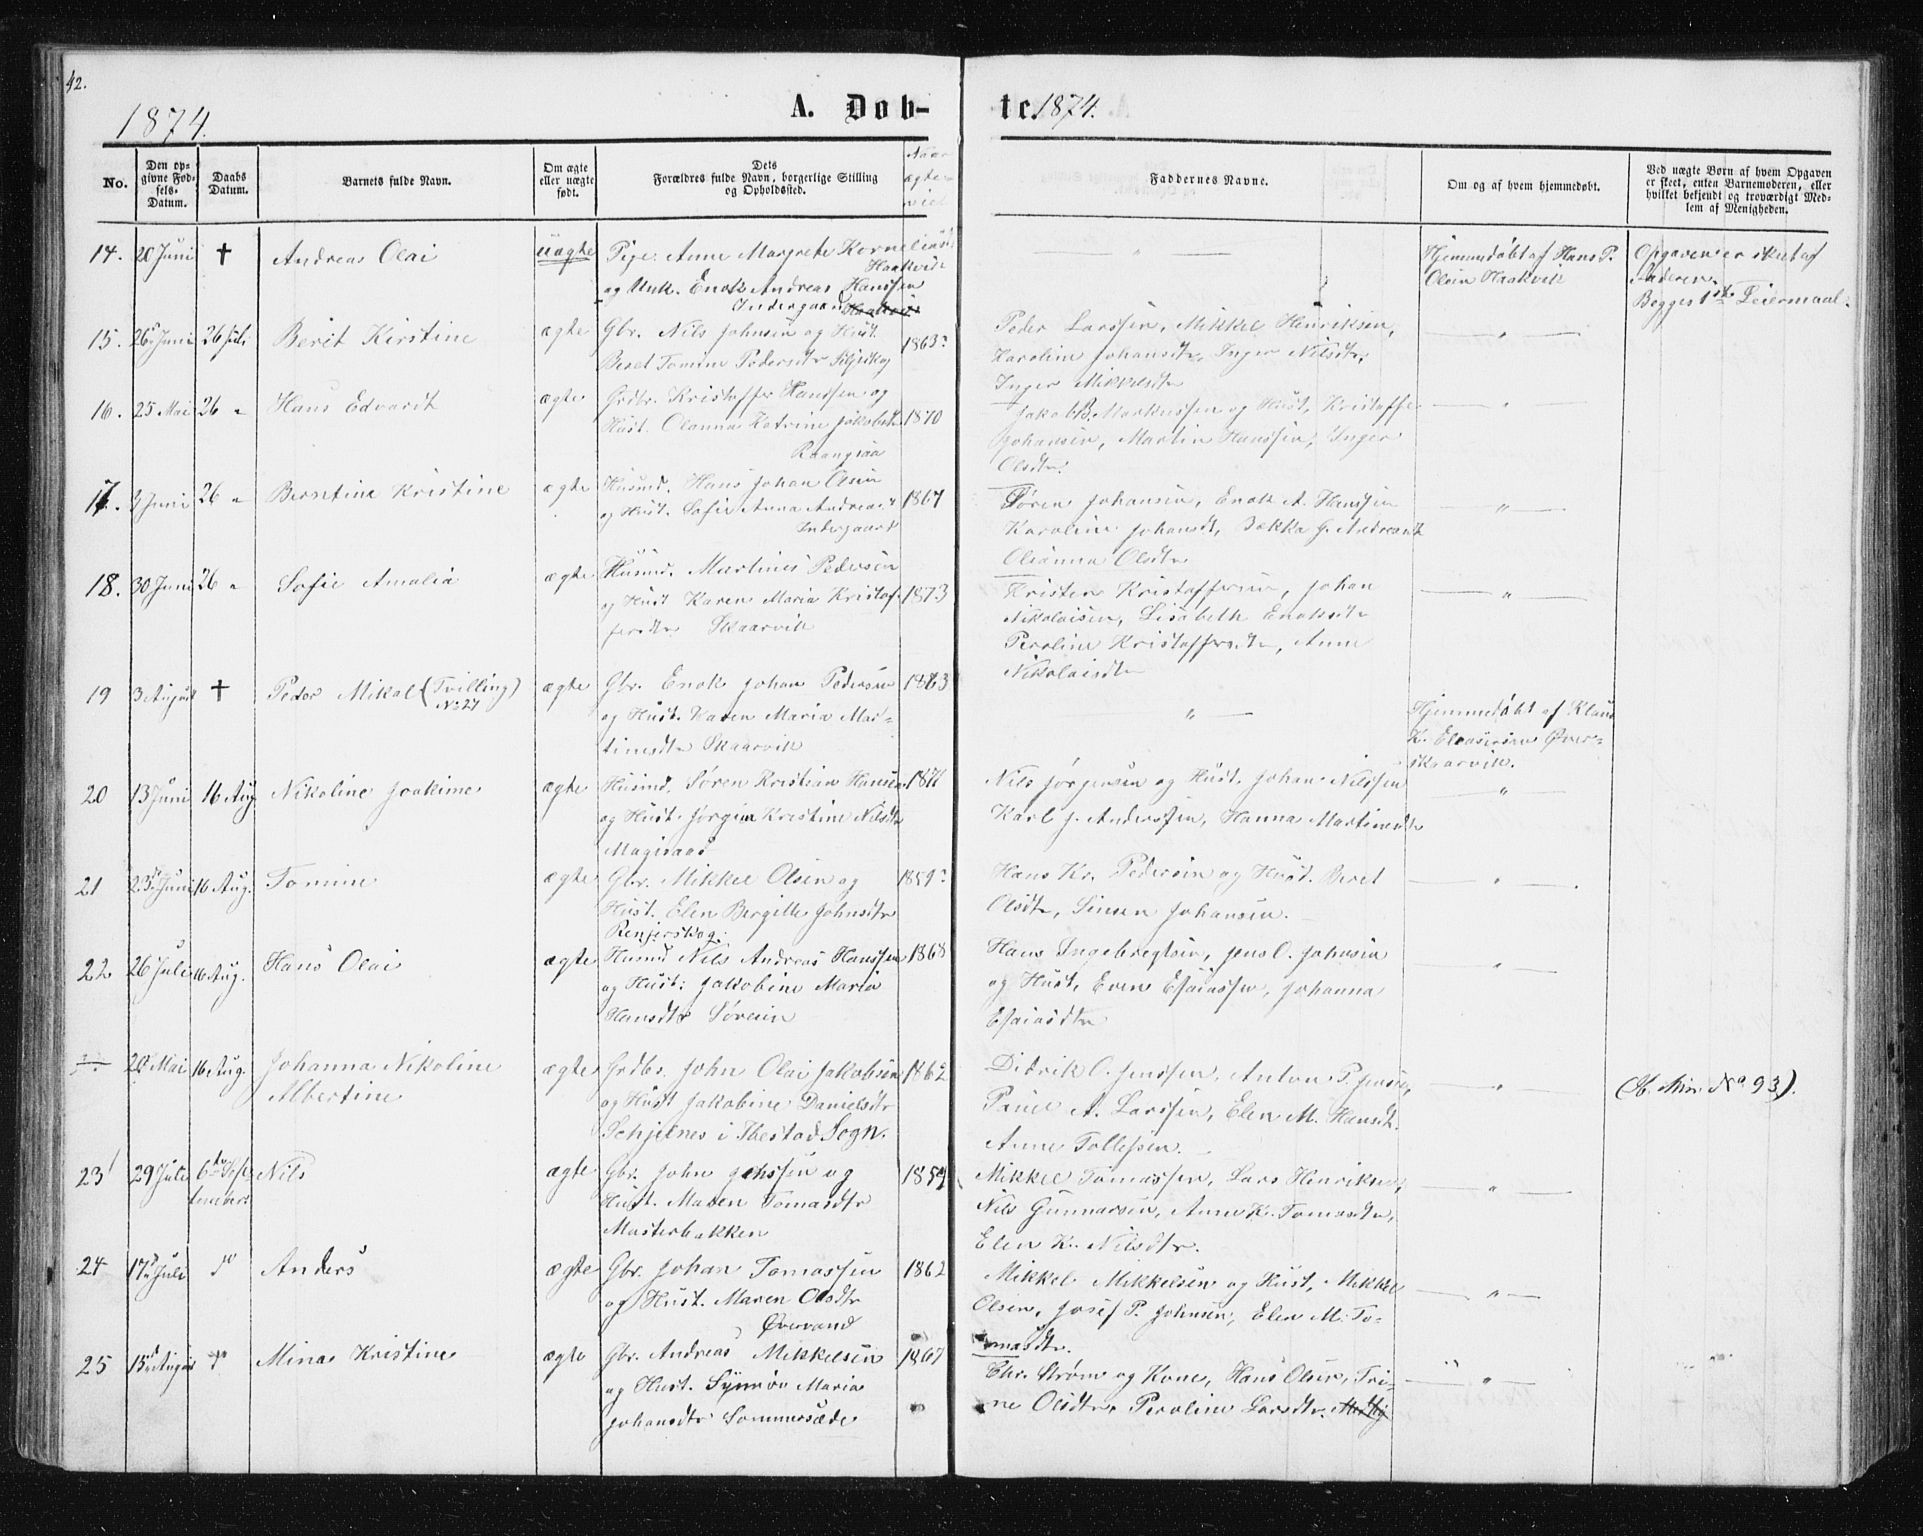 42.
1874.
A. Døb-
te. 1874.
No.
Den op-
givne Fød-
sels-
Datum.
Daabs
Datum.
Barnets fulde Navn.
Om ægte
eller uægte
født.
Dets
Forældres fulde Navn, borgerlige Stilling
og Opholdssted.
Naar
ægte-
viet
Faddernes Navne.
Om og af hvem hjemmedøbt.
Ved uægte Børn af hvem Opgaven
er skeet, enten Barnemoderen, eller
hvilket bekjendt og troværdigt Med-
lem af Menigheden.
14. 20 Juni † Andreas Olai uægte Pige Anne Margrete Kornelius
Haakvik
og Unk. Enok Andreas Hanssen
Indergaard Haakvik
— " — Hjemmedøbt af Hans P.
Olsen Haakvik
Opgaven er skeet af
Faderen.
Begges 1ste Leiermaal.
15. 26 Juni 26 Juli Berit Kirstine ægte Gbr. Nils Johnsen og Hust.
Beret Tomine Pedersdtr 1863
Peder Larssen, Mikkel Henriksen,
Karoline Johansdtr, Inger Nilsdtr,
Inger Mikkelsdtr — " —
16. 25 Mai 26 " Hans Edvardt ægte Grdbr. Kristoffer Hanssen og
Hust. Olanna Katrine Jakobsdtr 1870
Raangsaa
Jakob B. Markussen og Hust, Kristoffer
Johansen, Martin Hanssen, Inger
Olsdtr. — " —
17. 2 Juni 26 " Berntine Kristine ægte Husmd. Hans Johan Olsen
og Hust. Sofie Anna Andreasdt 1867
Indergaard
Søren Johansen, Enok A. Hanssen
Karoline Johansdt, Bekka J. Andreasdt
Oleanna Olsdtr — " —
18. 30 Juni 26 " Sofie Amalia ægte Husmd. Martines Pedersen
og Hust Karen Maria Kristof- 1873
fersdtr Skaarvik
Kristen Kristoffersen, Johan
Nikolaisen, Lisabeth Enoksdtr
Peroline Kristoffersdtr, Anne
Nikolaisdtr — " —
19 3 August † Peder Mikal (Tvilling)
No 27 ægte Gbr. Enok Johan Pedersen 1863
og Hust. Karen Maria Mar-
tinesdtr Skaarvik
— " — Hjemmedøbt af Klaus
K. Eleasersen Øver-
skaarvik.
20 13 Juni 16 Aug Nikoline Joakime ægte Husmd. Søren Kristian Hansen 1871
og Hust. Jørgine Kristine Nilsdtr
Magisaas
Nils Jørgensen og Hust. Johan Nilssen
Karl J. Anderssen, Hanna Martinsdtr — " —
21 23 Juni 16 Aug. Tomine ægte Gbr. Mikkel Olsen og 1859
Hust. Elen Bergitte Johnsdtr
Renjerskog.
Hans Kr. Pedersen og Hust. Beret
Olsdtr, Simen Johansen. — " —
22 26 Juli 16 Aug. Hans Olai ægte Husmd Nils Andreas Hanssen 1868
og Hust: Jakobine Maria
Hansdtr Søveien
Hans Ingebregtsen, Jens O. Johnsen
og Hust, Even Esaiassen, Johanna
Esaiasdtr — " —
— 20 Mai 16 Aug. Johanna Nikoline
Albertine ægte Grdbr. John Olai Jakobsen 1862
og Hust Jakobine Danielsdtr
Schjelnes i Ibestad Sogn.
Didrik O. Jenssen, Anton P. Jenssen,
Paul A. Larssen, Elen M. Hansdt.
Anne Tollefsen. — " — No 93).
23 29 Juli 6te Sep-
tember Nils ægte Gbr. John Jenssen og 1859
Hust. Maren Tomasdtr
Masterbakken
Mikkel Tomassen, Lars Henriksen,
Nils Gunnarsen, Anne K. Tomasdtr,
Elen K. Nilsdtr. — " —
24 17 Juli do Anders ægte Gbr. Johan Tomassen 1862
og Hust. Maren Olsdtr
Øvervand
Mikkel Mikkelsen og Hust, Mikkel
Olsen, Josef P. Johnsen, Elen M. To-
masdtr. — " —
25 13 August do Mina Kristine ægte Gbr. Andreas Mikkelsen 1867
og Hust. Synnøv Maria
Johansdtr Sommersæde
Chr. Strøm og Kone, Hans Olsen, Tri-
ne Olsdtr, Peroline Larsdtr. — " —